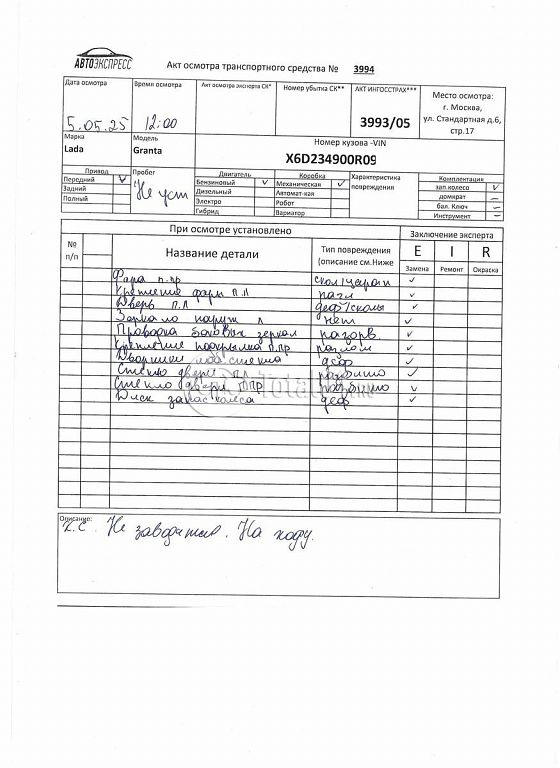 АВТОЭКСПРЕСС
Акт осмотра транспортного средства № 3994
Дата осмотра
5.05.25
Время осмотра
12:00
Акт осмотра эксперта СК*
Номер убытка СК**
АКТ ИНГОССТРАХ***
3993/05
Место осмотра:
г. Москва,
ул. Стандартная д.6,
стр.17
Марка
Lada
Модель
Granta
Номер кузова -VIN
X6D234900R09
Привод
Передний V
Задний
Полный
Пробег
Не уст
Двигатель
Бензиновый V
Дизельный
Электро
Гибрид
Коробка
Механическая V
Автомат-кая
Робот
Вариатор
Характеристика
повреждения
Комплектация
зап.колесо V
домкрат –
бал. Ключ –
Инструмент –
При осмотре установлено
Заключение эксперта
№
п/п
Название детали
Тип повреждения
(описание см.Ниже
E I R
Замена Ремонт Окраска
Фара п.пр скол/царап ✓
Крепление фары п.л разл ✓
Дверь п.л деф/сколы ✓
Зеркало наруж л нет ✓
Проводка боковых зеркал разорв. ✓
Крепление подкрылка п.пр разлом ✓
Дворники лоб стекла деф ✓
Стекло двери п.л разбито ✓
Стекло двери п.пр разбито ✓
Диск запас колеса деф ✓
Описание:
К.С. Не заводится. На ходу.